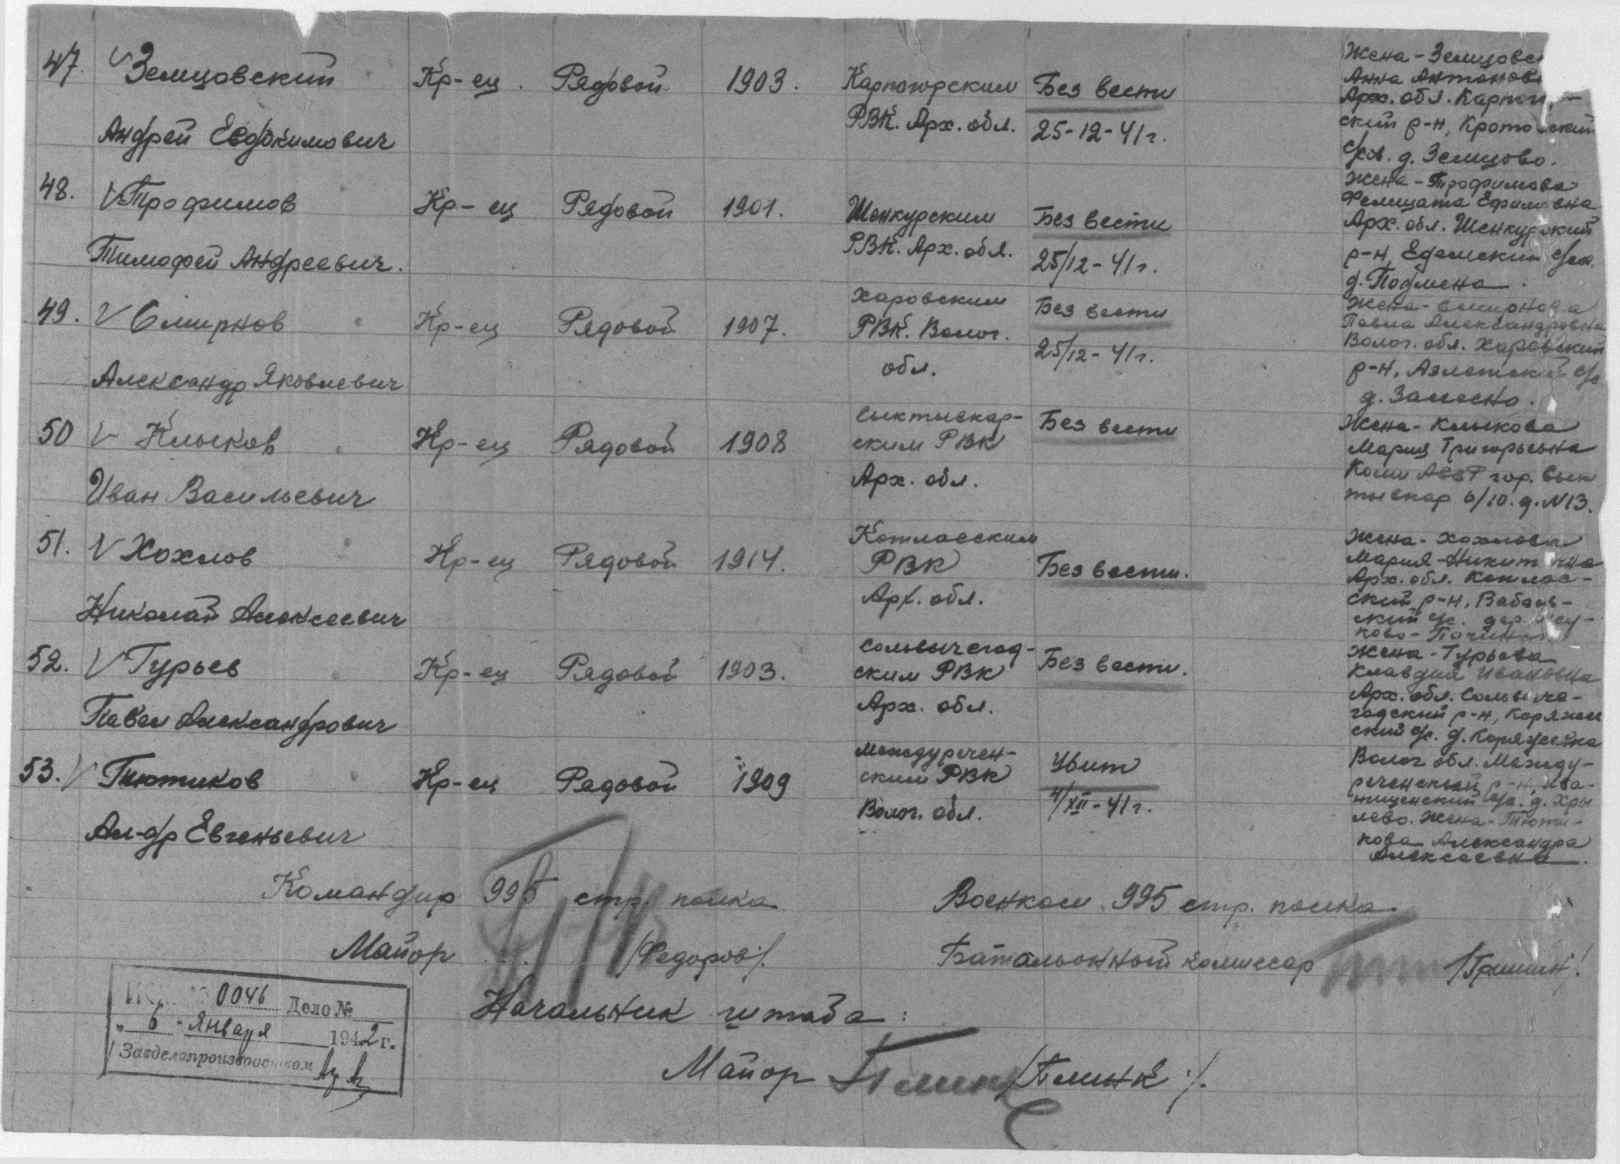 47. Земцовский Кр-ец. Рядовой 1903. Карпогорским Без вести Жена-
Андрей Евдокимович РВК. Арх. обл. 25-12-41г. Анна
Арх. обл.
ский р-н,
д. Земцово.
48. Трофимов Кр-ец Рядовой 1901. Шенкурским Без вести Жена-Трофимова
Тимофей Андреевич. РВК. Арх. обл. 25/12-41г. Ефимовна
Арх. обл. Шенкурский
р-н, Едемский с/сов.
д.
49. Смирнов Кр-ец Рядовой 1907. Харовским Без вести Жена-Смирнова
Александр Яковлевич РВК. Волог. 25/12-41г. Александровна
обл. Волог. обл. Харовский
р-н, Азлецкий с/с
д.
50 Клыков Кр-ец Рядовой 1908 Сыктывкар- Без вести Жена-Клыкова
Иван Васильевич ским РВК Мария Григорьевна
Арх. обл. Коми АССР гор. Сык
тывкар д. №13.
51. Хохлов Кр-ец Рядовой 1914. Котласским Без вести. Жена-Хохлова
Николай Алексеевич РВК Мария Никитична
Арх. обл. Арх. обл. Котлас-
ский р-н,
ский с/с. дер.
52. Гурьев Кр-ец Рядовой 1903. Сольвычегод- Без вести. Жена-Гурьева
Павел Александрович ским РВК Клавдия Ивановна
Арх. обл. Арх. обл. Сольвыче-
годский р-н, Коряжем
ский с/с. д. Коряжемка
53. Тютиков Кр-ец Рядовой 1909 Междуречен- Убит Волог обл. Между-
Ал-др Евгеньевич ским РВК 4/XII-41г. реченский р-н,
Волог. обл. с/с. д. Хры
лево. Жена-Тюти-
кова Александра
Алексеевна.
Командир 995 стр. полка Военком 995 стр. полка
Майор /Федоров/. Батальонный комиссар /Гришин/
0046 Дело №
„ 6 - Января 1942 г.
Завделопроизводством
Начальник штаба:
Майор /Плинк/.